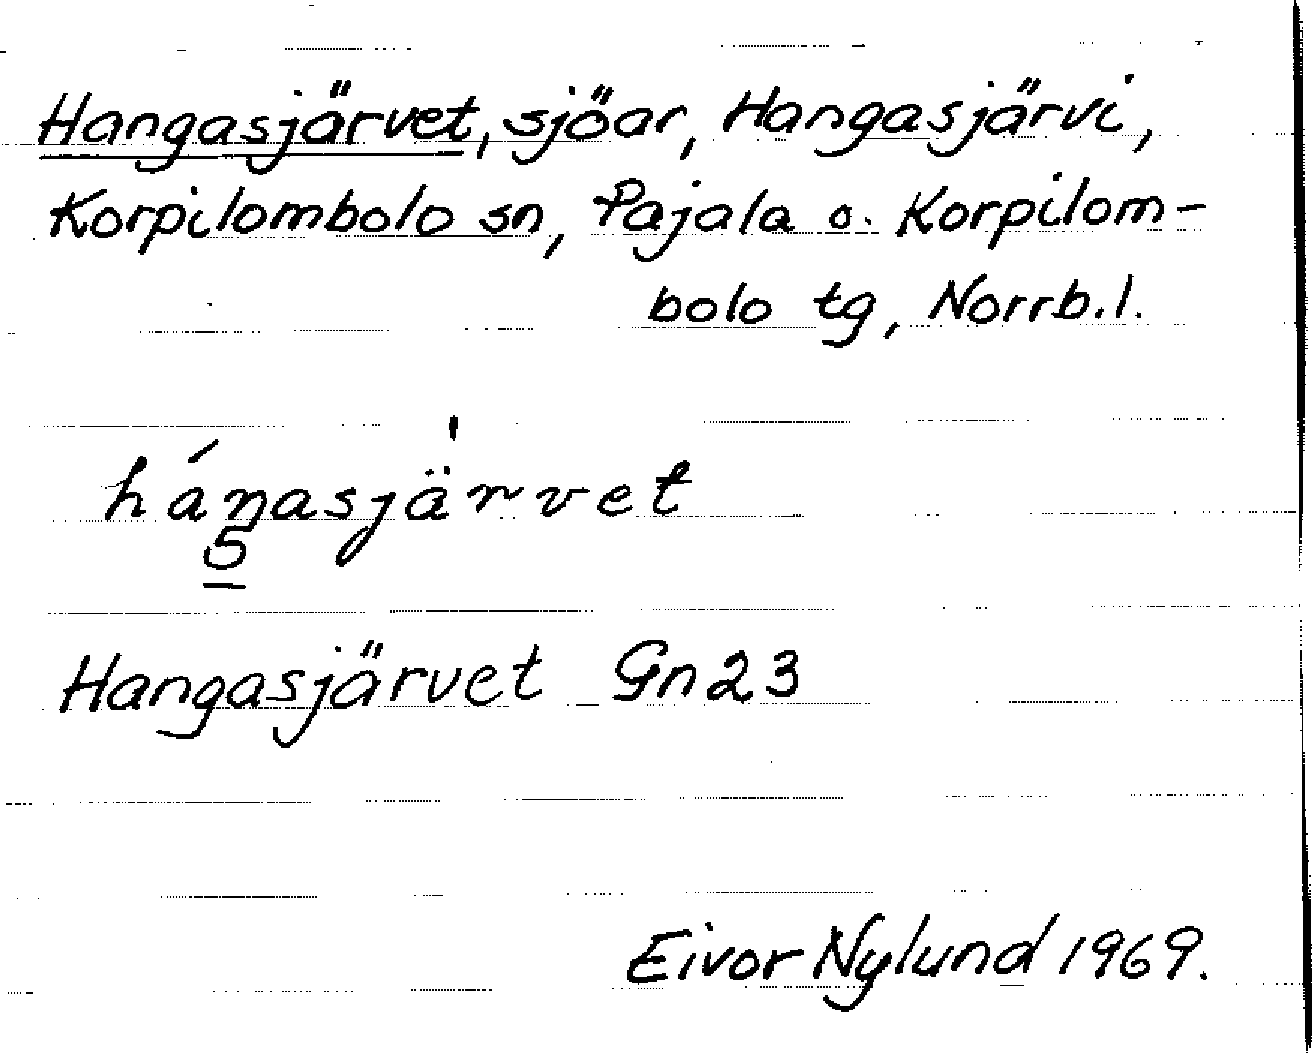 Hangasjärvet, sjöar, Hangasjärvi,
Korpilombolo sn, Pajala o. Korpilom-
bolo tg, Norrb.l.
háŋasjä'rvet
5
Hangasjärvet Gn23
Eivor Nylund 1969.